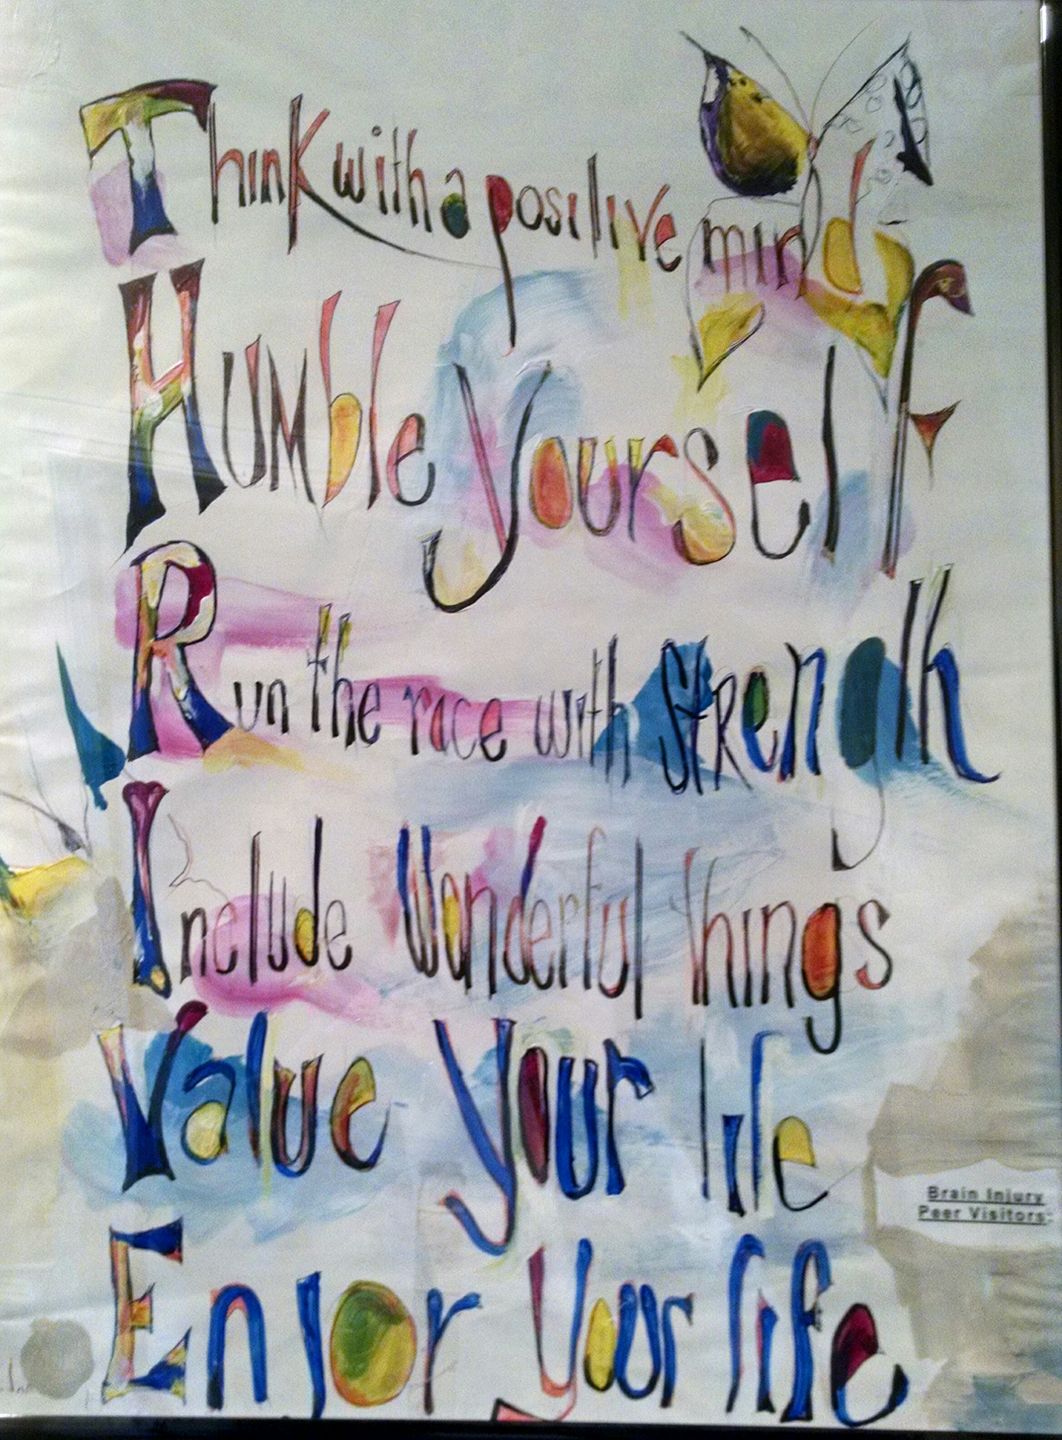 Think with a positive mind
Humble yourself
Run the race with strength
Include wonderful things
Value your life
Brain Injury
Peer Visitors:
Enjoy your life